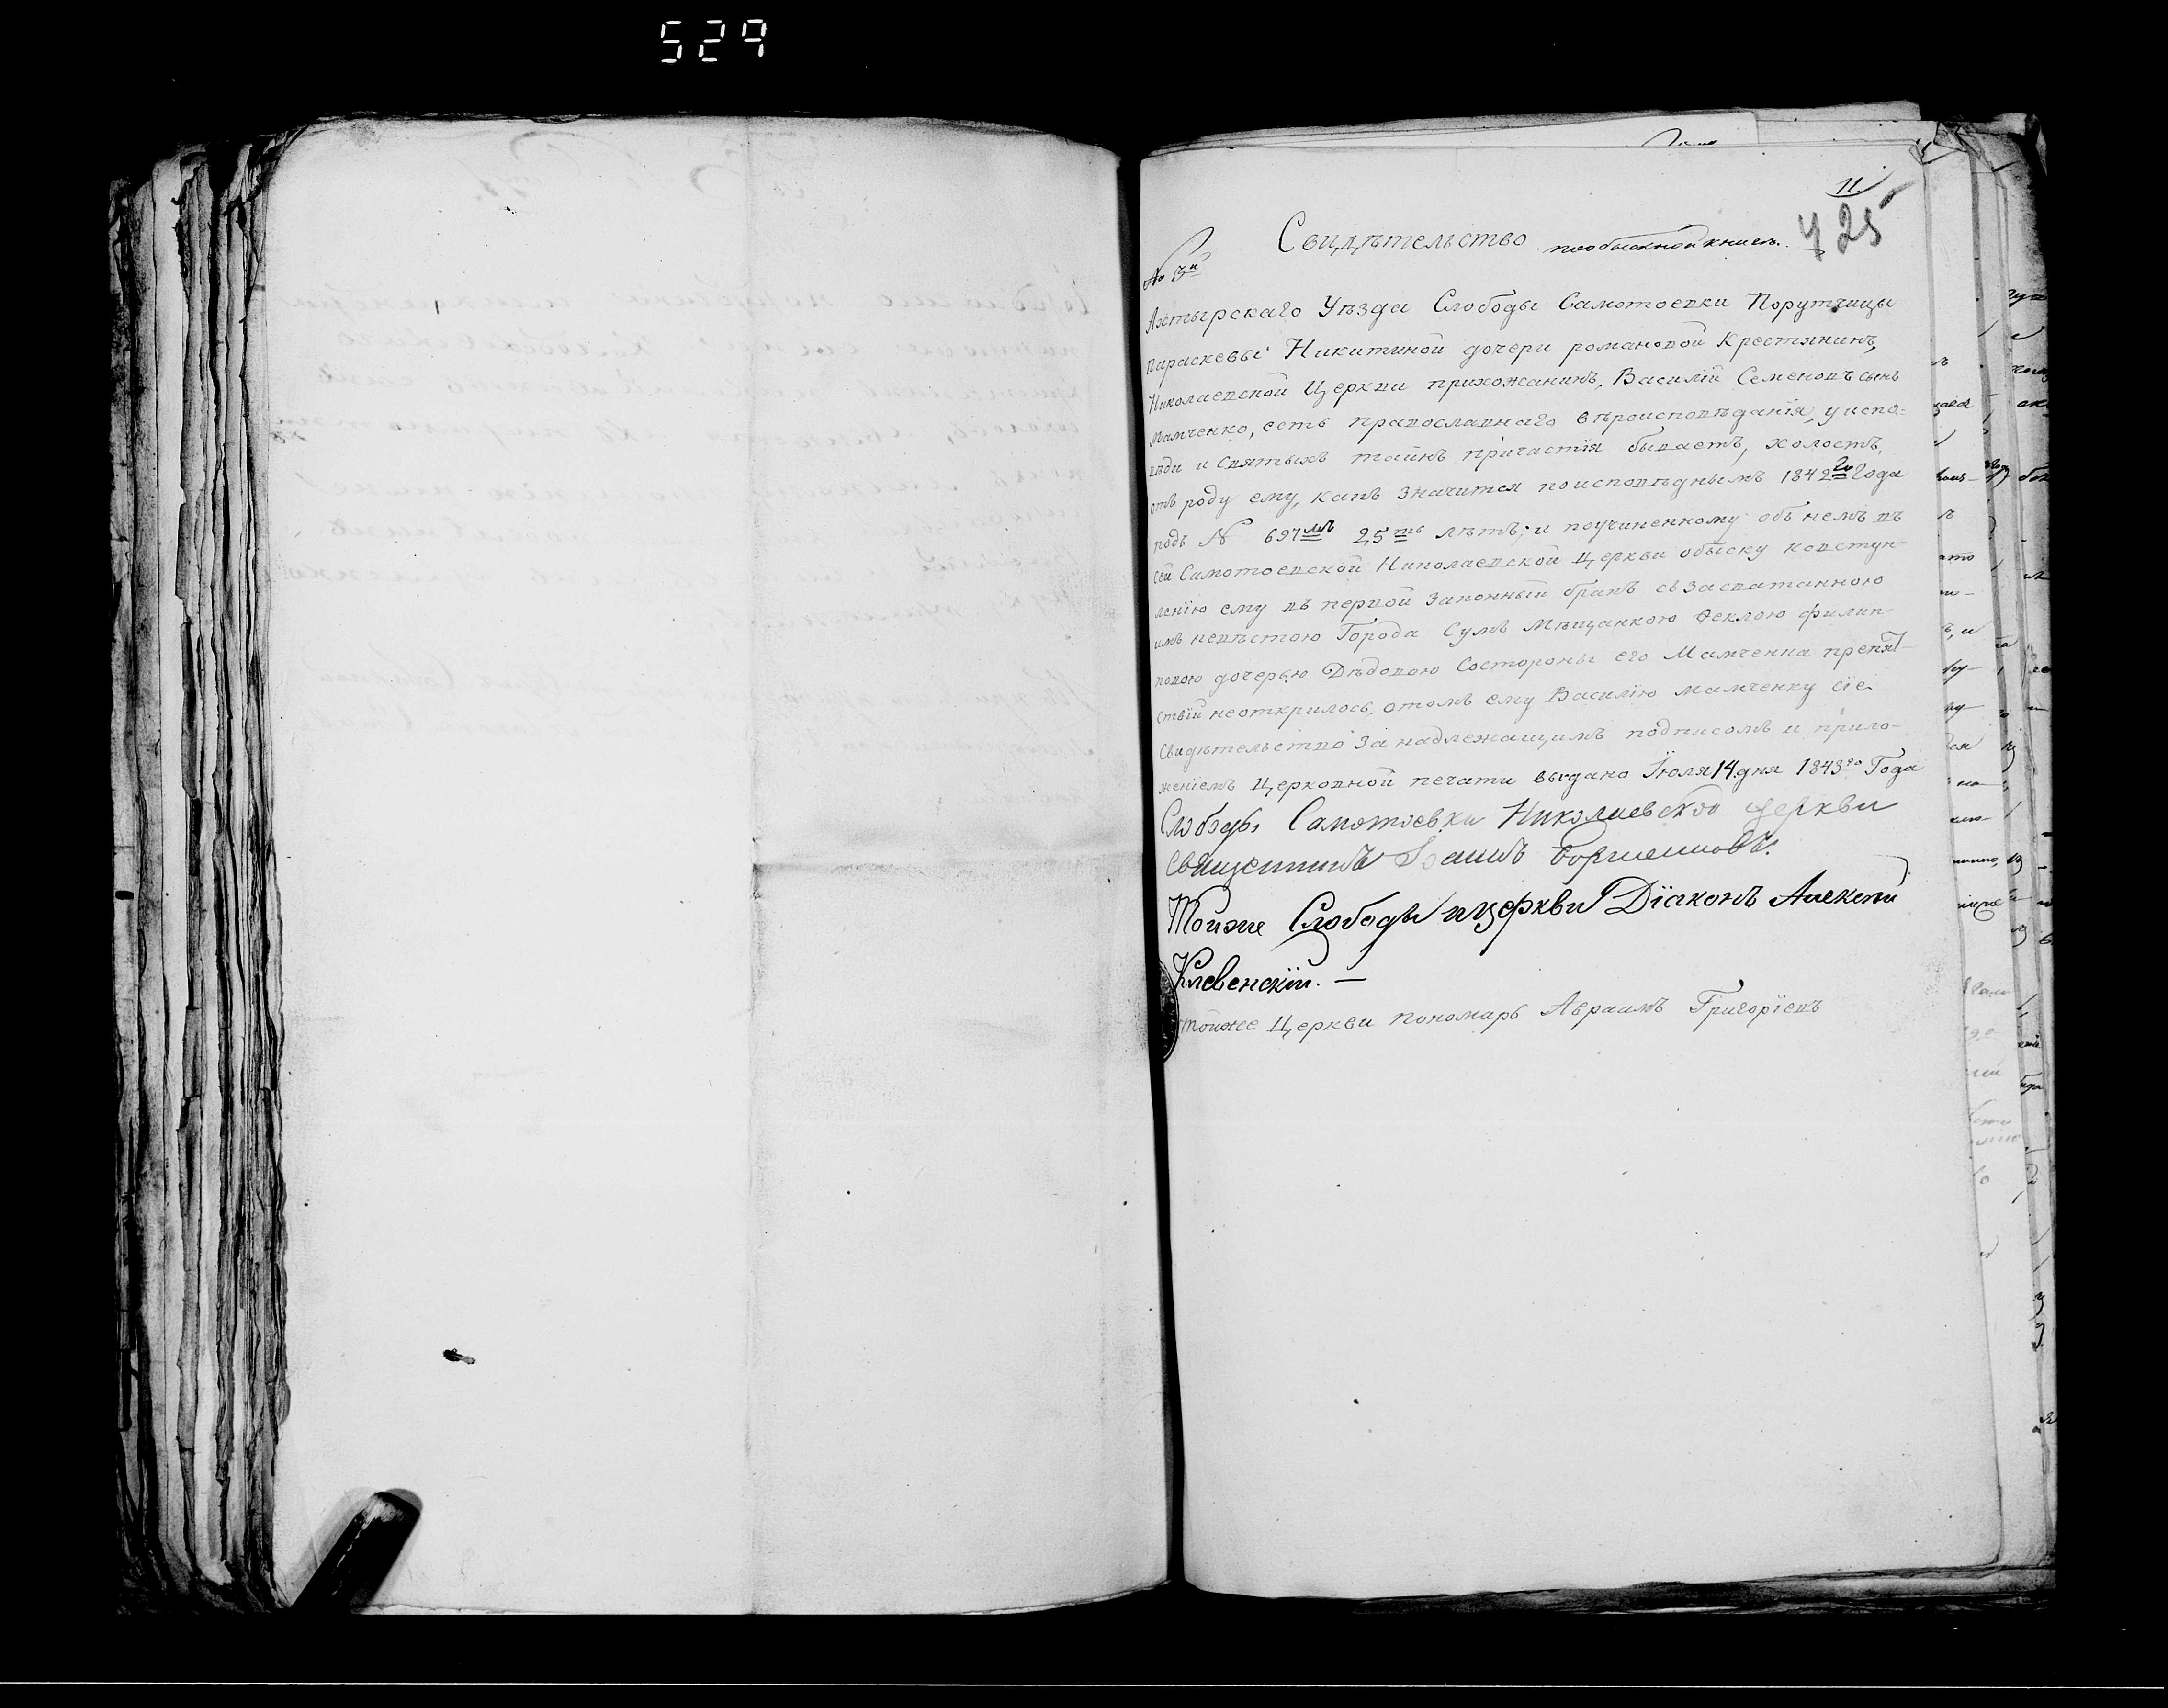 529
11
425
Свидѣтельство пообыскной книгѣ.
№ 3й
Ахтырскаго Уѣзда Слободы Самотоевки Порутчицы
параскевы Никитиной дочери романовой Крестянинъ,
Николаевской Церкви прихожанинъ, Василій Семеновъ сынъ
мамченко, есть православнаго вѣроисповѣданія, у испо-
вѣди и Святыхъ таинъ причастія бываетъ, холостъ,
отъ роду ему, какъ значится поисповѣднымъ 1842го Года
подъ № 697мъ 25ть лѣтъ; и поучиненному объ немъ въ
сей Самотоевской Николаевской Церкви обыску ковступ-
ленію ему въ первой законный бракъ съ засватанною
имъ невѣстою Города Сумъ мѣщанкою Феклою филип-
повою дочерью Дѣдовою Состороны его Мамченка препят-
ствій неоткрылось. отомъ ему Василію мамченку сіе
свидѣтельство за надлежащимъ подписомъ и прило-
женіемъ Церковной печати выдано Іюля 14 дня 1843го Года
Слободы Самотоевки Николаевской церкви
священникъ Іоаннъ
Тойже Слободы ицеркви Діаконъ Алексій
Клевенскій. —
тойже Церкви пономарь Авраамъ Григоріевъ